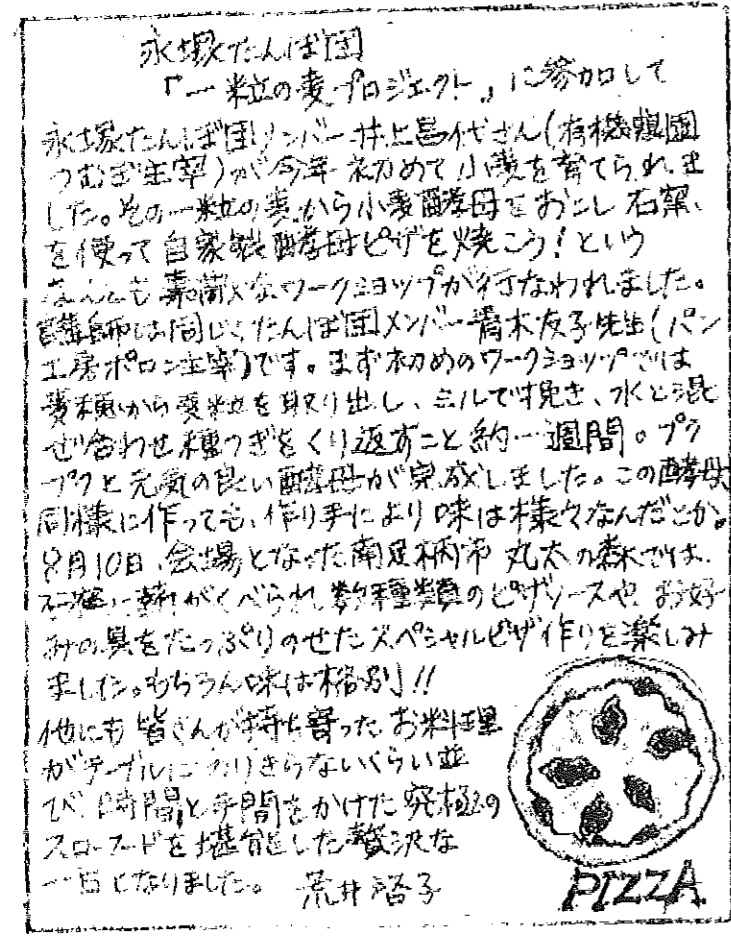 永塚たんぼ団
『一粒の麦プロジェクト』に参加して
永塚たんぼ団メンバー井上昌代さん(有機農園
つむぎ主宰)が今年初めて小麦を育てられま
した。その一粒の麦から小麦酵母をおこし石窯
を使って自家製酵母ピザを焼こう!という
なんとも素敵なワークショップが行なわれました。
講師は同じくたんぼ団メンバー青木友子先生(パン
工房ポロン主宰)です。まず初めのワークショップでは
麦穂から麦粒を取り出し、ミルで挽き、水と混
ぜ合わせ種つぎをくり返すこと約一週間。プク
プクと元気の良い酵母が完成しました。この酵母、
同様に作っても、作り手により味は様々なんだとか。
8月10日、会場となった南足柄市 丸太の森では、
石窯に薪がくべられ、数種類のピザソースや、お好
みの具をたっぷりのせたスペシャルピザ作りを楽しみ
ました。もちろん味は格別!!
他にも皆さんが持ち寄ったお料理
がテーブルにのりきらないくらい並
び、時間と手間をかけた究極の
スローフードを堪能した贅沢な
一日となりました。 荒井啓子
PIZZA